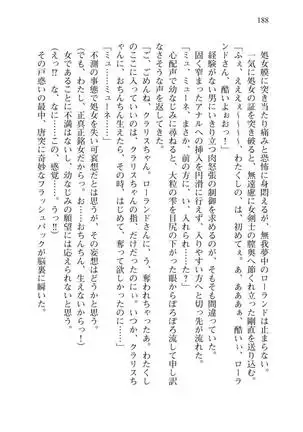 188
処女膜に突き当たり痛みと恐怖に身悶えるが、無我夢中のローランドは止まらない。
一気に処女の証を突き破ると、無遠慮に剣士の膣奥へ節くれ立った剛直を送り込む。
「ふえ、えええぇぇ！　わたくしのは、初めてぇぇっ。あ、ああああ、酷いぃ、ローラ
ンドさん、酷いよぉおっ！」
経験がない男にいきなり肉怒張の制御を求めるのが、そもそも間違っていた。
固く窄まったアナルへの挿入を円滑に行えず、入りやすい方へと切っ先が流れる。
「ミュ、ミューネ、まさか、前の方に、入ったの？」
心配声で幼なじみに尋ねると、大粒の雫を尻の下がった眼からぽろぽろ流して申し訳
なさそうな声を出してきた。
「ご、ごめんね、クラリスちゃん。ローランドさんに、う、奪われちゃったよ。わたくし
のここに入っていいのは、クラリスちゃんの指、だけだったのにぃ。いつか、クラリスち
ゃんに、おちんちん生えたら、その時、はじめて、奪って欲しかったのにぃ」
「ミュ……ミューネ……」
不測の事態で処女を失い可哀想だとは思う。が、その妄想はどうかと思う。
「でも、わたし、正真正銘女だから。お……おちんちん、生えないからっ！
女であることに不満はない。しかし、幼なじみの願望には応えられないなと思う。
（えっ!?　な、なに……この、感覚……。うっ!!）
その戸惑いの最中、唐突に奇妙なフラッシュバックが脳裏に瞬いた。